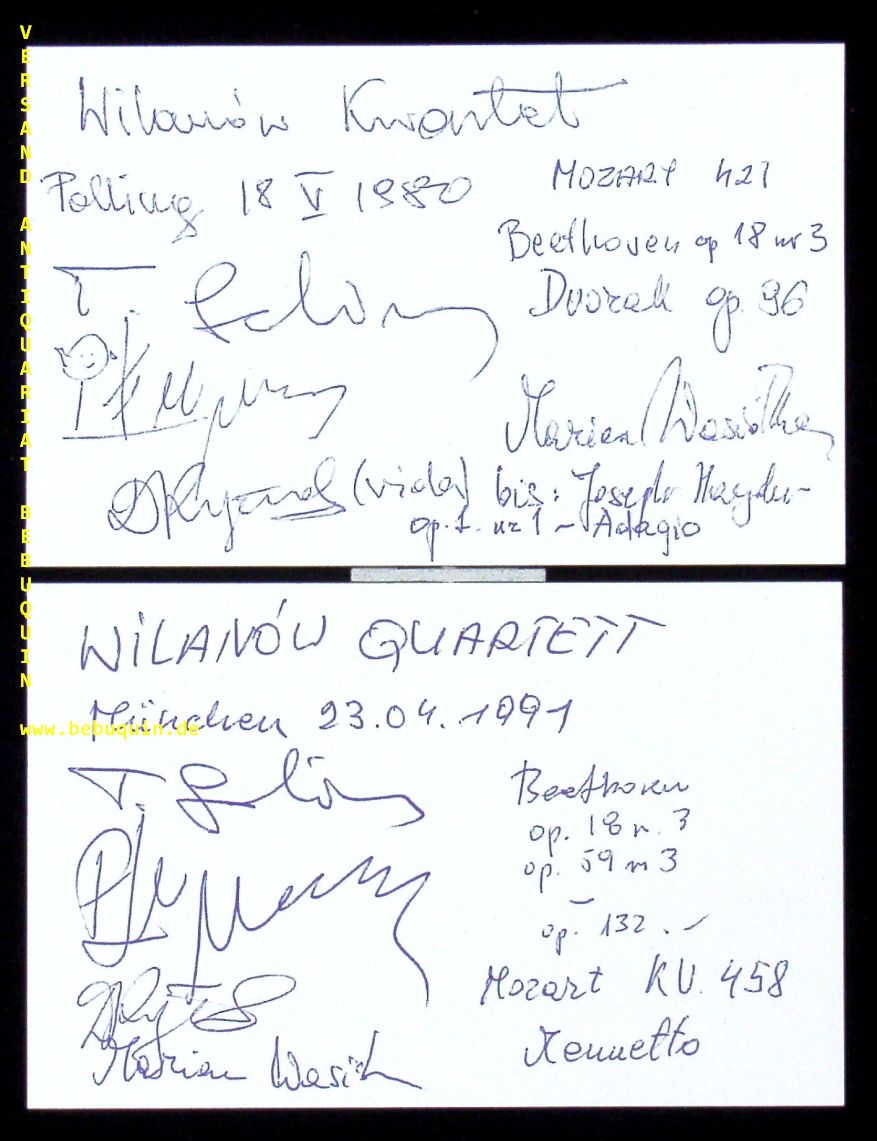 VERSAND ANTIQUARIAT BEBUQUIN
www.bebuquin.de
Wilanów Kwartet
Polling 18 V 1980
MOZART 421
Beethoven op 18 nr 3
Dvorak op. 96
T.
Marian Wasiółka
(viola) bis: Joseph Haydn
op. 1. nr 1 ~ Adagio
WILANÓW QUARTETT
München 23.04.1991
T.
Beethoven
op. 18 n. 3
op. 59 nr 3
op. 132 .-
Mozart KV. 458
Menuetto
Marian Wasiółka